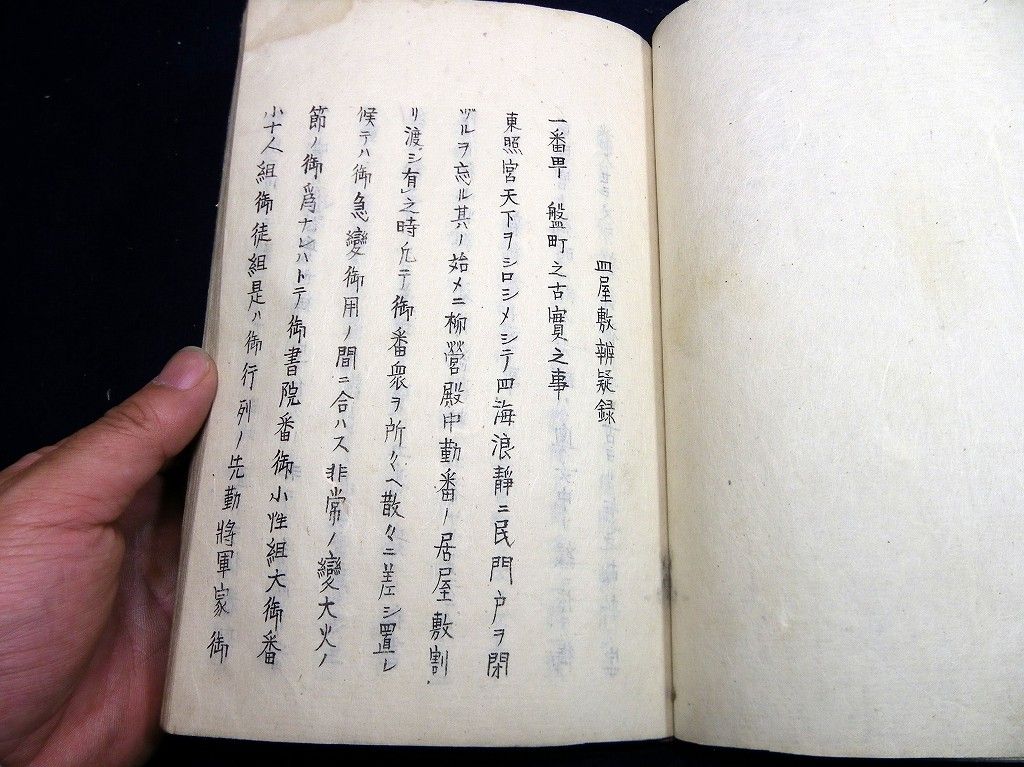 皿屋敷辨疑録
一番畀 盤町之古實之事
東照宮天下ヲシロシメシテ四海浪靜ニ民門戸ヲ閉
ヅルヲ忘ル其ノ始メニ柳營殿中勤番ノ居屋敷割
リ渡シ有之時凢テ御番衆ヲ所々ヘ散々ニ差シ置レ
候テハ御急變御用ノ間ニ合ハス非常ノ變大火ノ
節ノ御爲ナレハトテ御書院番御小性組大御番
小十人組御徒組是ハ御行列ノ先勤將軍家御